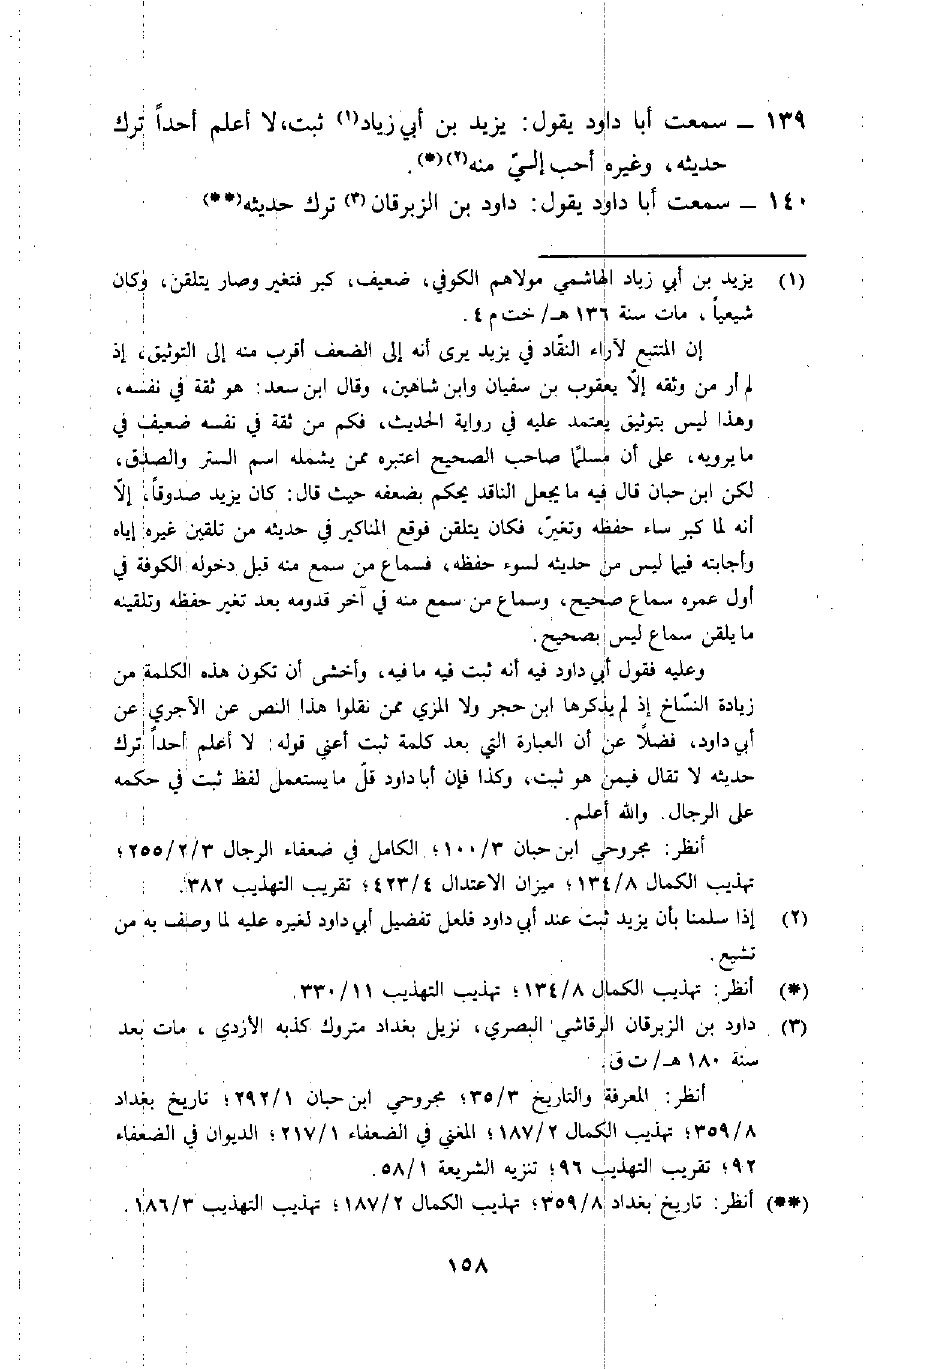 ١٣٩ ــ سمعت أبا داود يقول: يزيد بن أبي زياد(١) ثبت، لا أعلم أحداً ترك
حديثه، وغيره أحب إليّ منه(٢)(*).
١٤٠ ــ سمعت أبا داود يقول: داود بن الزبرقان(٣) ترك حديثه(**)
(١) يزيد بن أبي زياد الهاشمي مولاهم الكوفي، ضعيف، كبر فتغير وصار يتلقن، وكان
شيعياً، مات سنة ١٣٦ هـ/ خت م ٤.
إن المتتبع لآراء النقّاد في يزيد يرى أنه إلى الضعف أقرب منه إلى التوثيق، إذ
لم أر من وثقه إلّا يعقوب بن سفيان وابن شاهين، وقال ابن سعد: هو ثقة في نفسه،
وهذا ليس بتوثيق يعتمد عليه في رواية الحديث، فكم من ثقة في نفسه ضعيف في
ما يرويه، على أن مسلمًا صاحب الصحيح اعتبره ممن يشمله اسم الستر والصدق،
لكن ابن حبان قال فيه ما يجعل الناقد يحكم بضعفه حيث قال: كان يزيد صدوقاً، إلّا
أنه لما كبر ساء حفظه وتغيرّ، فكان يتلقن فوقع المناكير في حديثه من تلقين غيره إياه
وأجابته فيما ليس من حديثه لسوء حفظه، فسماع من سمع منه قبل دخوله الكوفة في
أول عمره سماع صحيح، وسماع من سمع منه في آخر قدومه بعد تغير حفظه وتلقينه
ما يلقن سماع ليس بصحيح.
وعليه فقول أبي داود فيه أنه ثبت فيه ما فيه، وأخشى أن تكون هذه الكلمة من
زيادة النسّاخ إذ لم يذكرها ابن حجر ولا المزي ممن نقلوا هذا النص عن الآجري عن
أبي داود، فضلاً عن أن العبارة التي بعد كلمة ثبت أعني قوله: لا أعلم أحداً ترك
حديثه لا تقال فيمن هو ثبت، وكذا فإن أبا داود قلّ ما يستعمل لفظ ثبت في حكمه
على الرجال. والله أعلم.
أنظر: مجروحي ابن حبان ٣/ ١٠٠؛ الكامل في ضعفاء الرجال ٣/ ٢/ ٢٥٥؛
تهذيب الكمال ٨/ ١٣٤؛ ميزان الاعتدال ٤/ ٤٢٣؛ تقريب التهذيب ٣٨٢.
(٢) إذا سلمنا بأن يزيد ثبت عند أبي داود فلعل تفضيل أبي داود لغيره عليه لما وصف به من
تشيع.
(*) أنظر: تهذيب الكمال ٨/ ١٣٤؛ تهذيب التهذيب ١١/ ٣٣٠.
(٣) داود بن الزبرقان الرقاشي البصري، نزيل بغداد متروك كذبه الأزدي، مات بعد
سنة ١٨٠ هـ/ ت ق.
أنظر: المعرفة والتاريخ ٣/ ٣٥؛ مجروحي ابن حبان ١/ ٢٩٢؛ تاريخ بغداد
٨/ ٣٥٩؛ تهذيب الكمال ٢/ ١٨٧؛ المغني في الضعفاء ١/ ٢١٧؛ الديوان في الضعفاء
٩٢؛ تقريب التهذيب ٩٦؛ تنزيه الشريعة ١/ ٥٨.
(**) أنظر: تاريخ بغداد ٨/ ٣٥٩؛ تهذيب الكمال ٢/ ١٨٧؛ تهذيب التهذيب ٣/ ١٨٦.
١٥٨